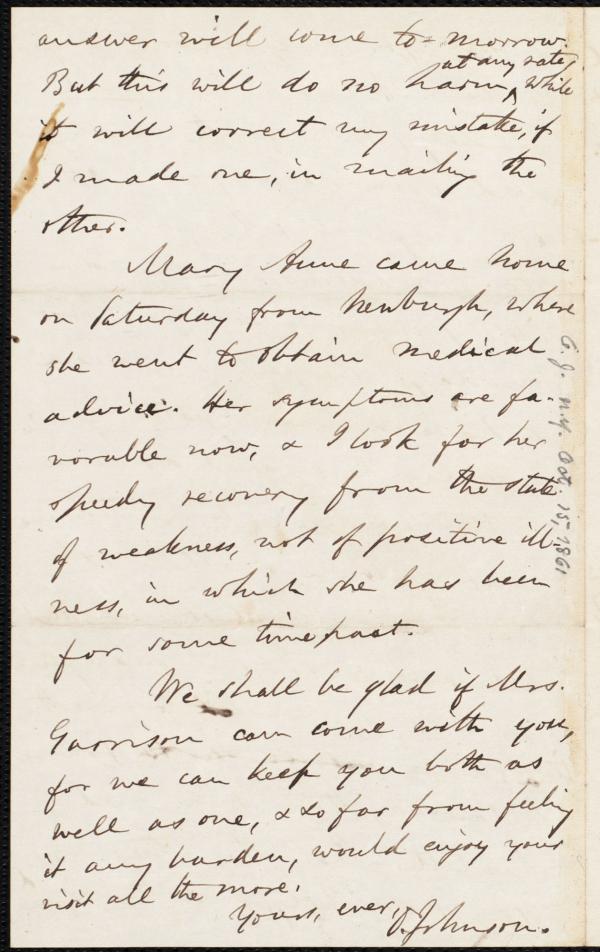 answer will come to-morrow.
But this will do no harm, at any rate, while
it will correct my mistake, if
I made one, in mailing the
other.
Mary Anne came home
on Saturday from Newburgh, where
she went to obtain medical
advice. Her symptoms are fa-
vorable now, & I look for her
speedy recovery from the state
of weakness, not of positive ill-
ness, in which she has been
for some time past.
We shall be glad if Mrs.
Garrison can come with you,
for we can keep you both as
well as one, & so far from feeling
it any burden, would enjoy your
visit all the more.
Yours, ever,
O. Johnson.
O. J. N.Y. Oct. 15, 1861